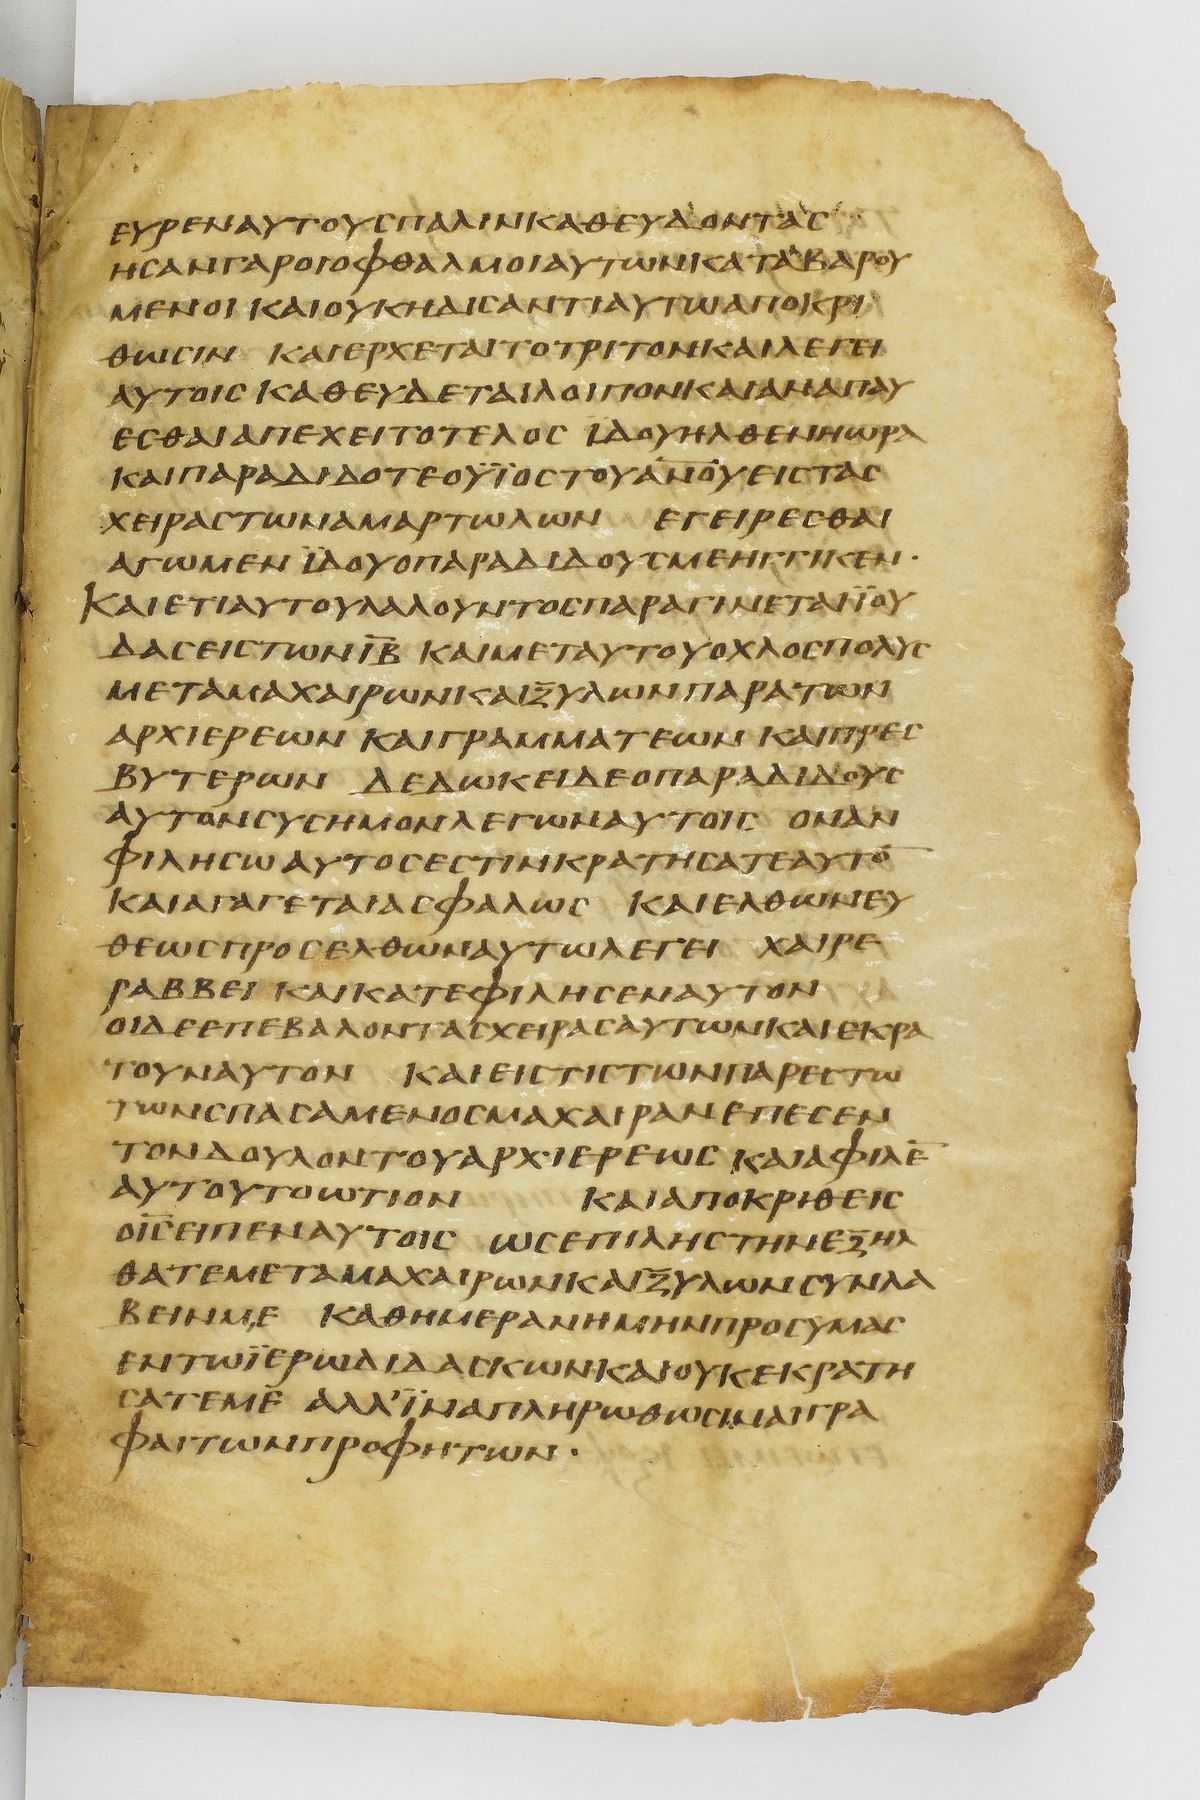 ευρεναυτουσπαλινκαθευδοντας
ησανγαροιοφθαλμοιαυτωνκαταβαρου
μενοι καιουκηδισαντιαυτωαποκρι
θωσιν καιερχεταιτοτριτονκαιλεγει
αυτοις καθευδεταιλοιπονκαιαναπαυ
εσθαιαπεχειτοτελος ϊδουηλθενηωρα
καιπαραδιδοτεοϋϊοστουανουειστας
χειραστωναμαρτωλων εγειρεσθαι
αγωμεν ϊδουοπαραδιδουσμεηγγικεν·
καιετιαυτουλαλουντοσπαραγινεταιϊου
δασειστωνιβ καιμεταυτουοχλοσπολυς
μεταμαχαιρωνκαιξυλωνπαρατων
αρχιερεων καιγραμματεων καιπρες
βυτερων δεδωκειδεοπαραδιδους
αυτονσυσημονλεγωναυτοις οναν
φιλησωαυτοσεστινκρατησατεαυτο̅
καιαγαγεταιασφαλως καιελθωνευ
θεωσπροσελθωναυτωλεγει χαιρε
ραββει καικατεφιλησεναυτον
οιδεεπεβαλοντασχειρασαυτωνκαιεκρα
τουναυτον καιειστιστωνπαρεστω
τωνσπασαμενοσμαχαιρανεπεσεν
τονδουλοντουαρχιερεως καιαφιλε̅
αυτουτοωτιον καιαποκριθεις
οι̅σ̅ειπεναυτοις ωσεπιληστηνεξηλ
θατεμεταμαχαιρωνκαιξυλωνσυνλα
βεινμε καθημερανημηνπροσυμας
εντωϊερωδιδασκωνκαιουκεκρατη
σατεμε αλλ'ϊναπληρωθωσιναιγρα
φαιτωνπροφητων·